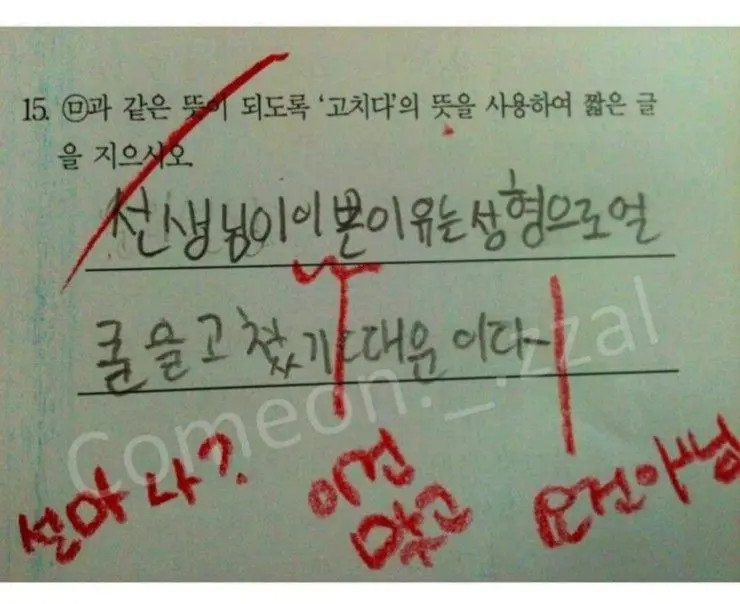 15. ㉤과 같은 뜻이 되도록 '고치다'의 뜻을 사용하여 짧은 글
을 지으시오.
선생님이 이쁜 이유는 성형으로 얼
굴을 고쳤기 때문이다~
설마 나?
이건
맞고
요건 아님
Comeon._.zzal